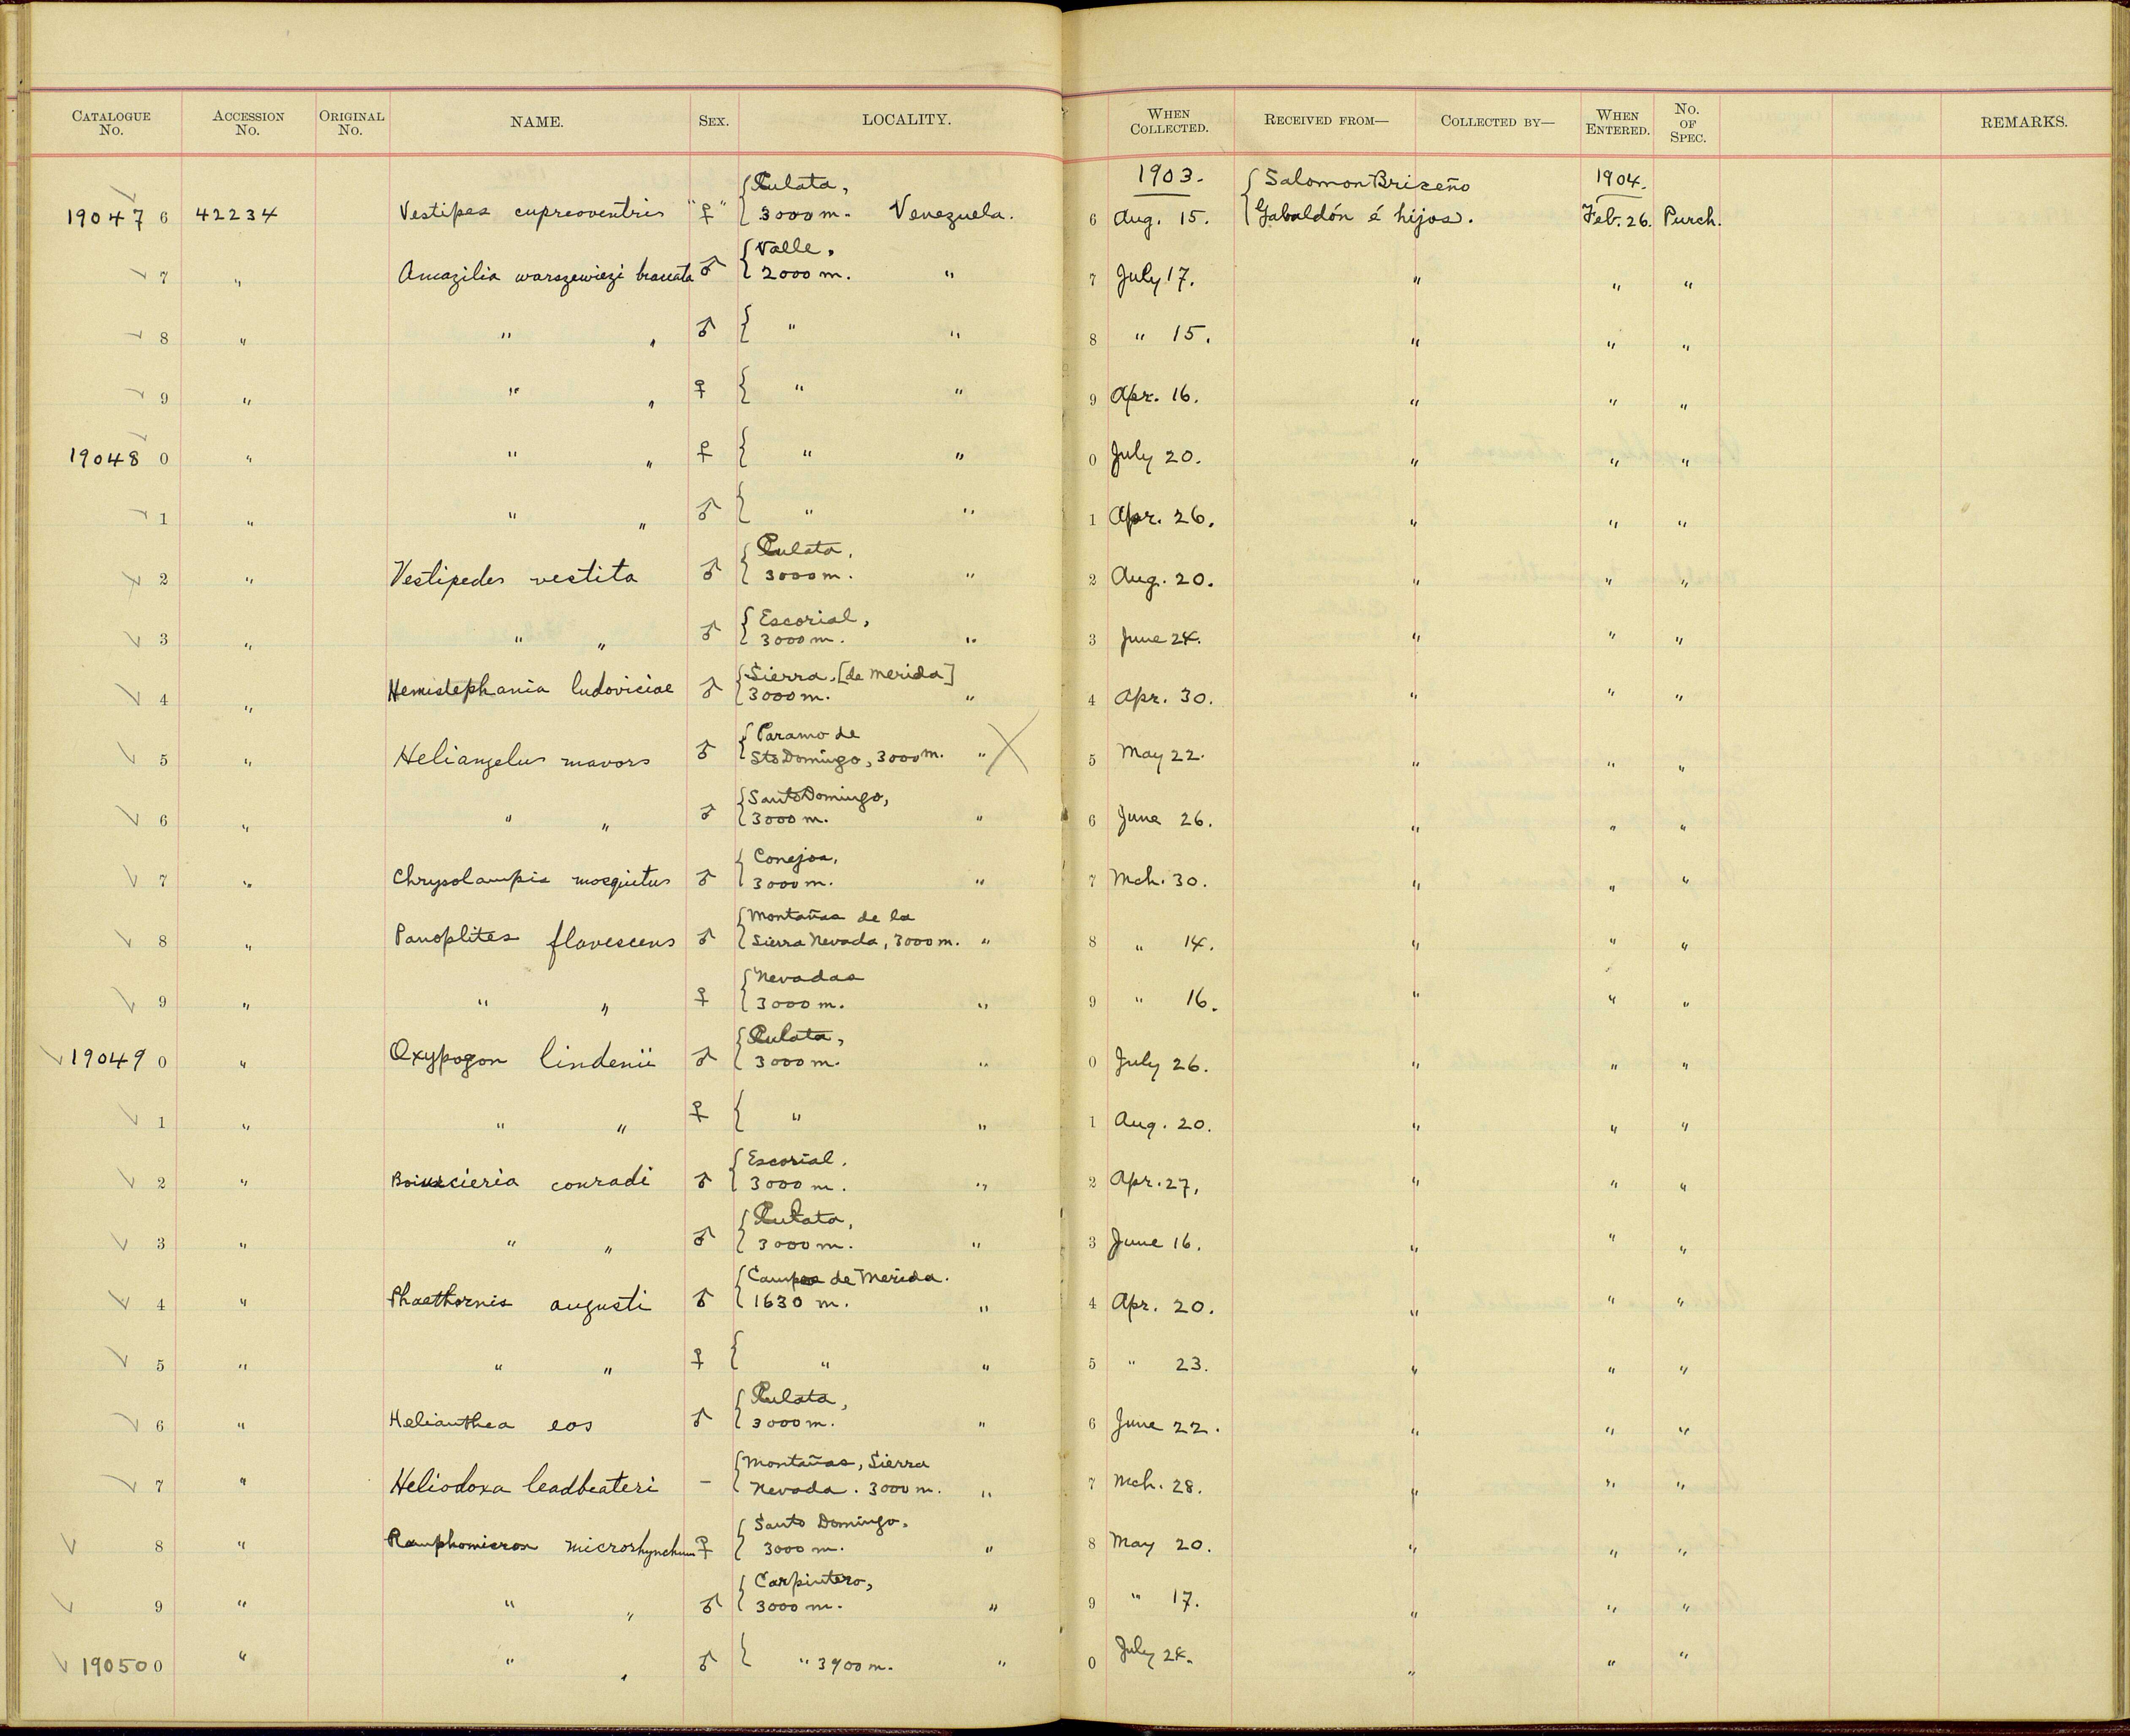 CATALOGUE No. ACCESSION No. ORIGINAL No. NAME. SEX. LOCALITY. WHEN COLLECTED. RECEIVED FROM— COLLECTED BY— WHEN ENTERED. No. OF SPEC. REMARKS.
{Culata, 1903. {Salomon Briceño 1904.
19047 6 42234 Vestipes cupreoventris "♀" {3000 m. Venezuela. 6 Aug. 15. {Gabaldón é hijos. Feb. 26. Purch.
{Valle,
7 " Amazilia warszewiezi braccata ♂ {2000 m. " 7 July 17. " " "
8 " " " ♂ { " " 8 " 15. " " "
9 " " " ♀ { " " 9 Apr. 16. " " "
19048 0 " " " ♀ { " " 0 July 20. " " "
1 " " " ♂ { " " 1 Apr. 26. " " "
{Culata,
2 " Vestipedes vestita ♂ {3000 m. " 2 Aug. 20. " " "
{Escorial,
3 " " " ♂ {3000 m. " 3 June 24. " " "
{Sierra, [de Merida]
4 " Hemistephania ludoviciae ♂ {3000 m. " 4 Apr. 30. " " "
{Paramo de
5 " Heliangelus mavors ♂ {Sto Domingo, 3000 m. " X 5 May 22. " " "
{Santo Domingo,
6 " " " ♂ {3000 m. " 6 June 26. " " "
{Conejos,
7 " Chrysolampis mosquitus ♂ {3000 m. " 7 Mch. 30. " " "
{Montañas de la
8 " Panoplites flavescens ♂ {Sierra Nevada, 3000 m. " 8 " 14. " " "
{Nevadas
9 " " " ♀ {3000 m. " 9 " 16. " " "
{Culata,
19049 0 " Oxypogon lindenii ♂ {3000 m. " 0 July 26. " " "
1 " " " ♀ { " " 1 Aug. 20. " " "
{Escorial.
2 " conradi ♂ {3000 m. " 2 Apr. 27, " " "
{Culata,
3 " " " ♂ {3000 m. " 3 June 16. " " "
{Campos de Merida.
4 " Phaethornis augusti ♂ {1630 m. " 4 Apr. 20. " " "
5 " " " ♀ { " " 5 " 23. " " "
{Culata,
6 " Helianthea eos ♂ {3000 m. " 6 June 22. " " "
{Montañas, Sierra
7 " Heliodoxa leadbeateri – {Nevada. 3000 m. " 7 Mch. 28. " " "
{Santo Domingo.
8 " Ramphomicron microrhynchum ♀ {3000 m. " 8 May 20. " " "
{Carpintero,
9 " " " ♂ {3000 m. " 9 " 17. " " "
19050 0 " " " ♂ { " 3900 m. " 0 July 24. " " "